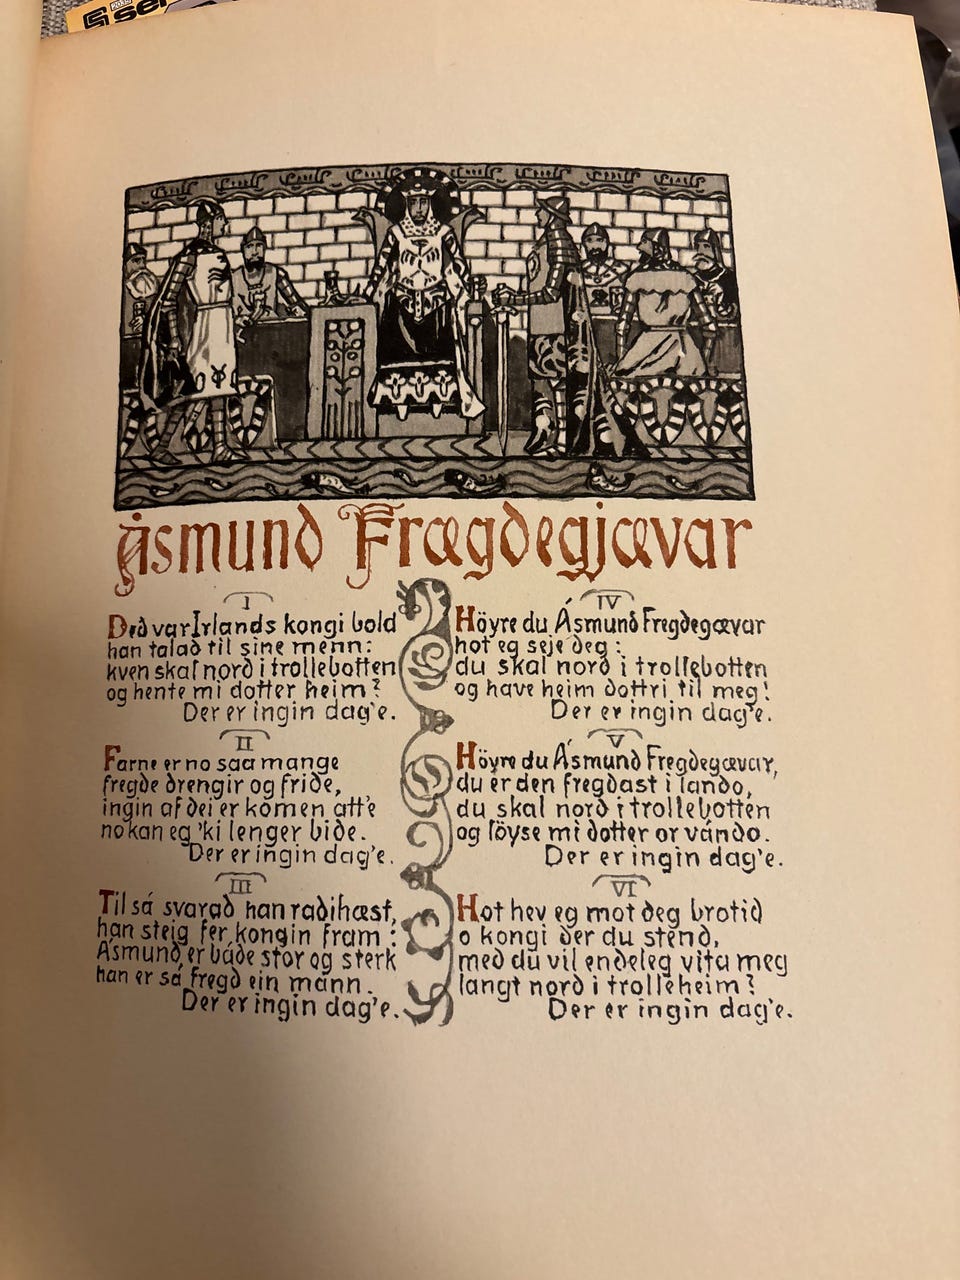 Ásmund Frægdegjævar
I
Ded var Irlands kongi bold
han talad til sine menn:
kven skal nord i trollebotten
og hente mi dotter heim?
Der er ingin dag'e.
II
Farne er no saa mange
fregde drengir og fride,
ingin af dei er komen att'e
no kan eg 'ki lenger bide.
Der er ingin dag'e.
III
Til så svarad han radihæst,
han steig fer kongin fram:
Ásmund er både stor og sterk
han er så fregd ein mann.
Der er ingin dag'e.
IV
Höyre du Ásmund Fregdegævar
hot eg seje deg:
du skal nord i trollebotten
og have heim dottri til meg!
Der er ingin dag'e.
V
Höyre du Ásmund Fregdegævar,
du er den fregdast i lando,
du skal nord i trollebotten
og löyse mi dotter or vándo.
Der er ingin dag'e.
VI
Hot hev eg mot deg brotid
o kongi der du stend,
med du vil endeleg vita meg
langt nord i trolleheim?
Der er ingin dag'e.